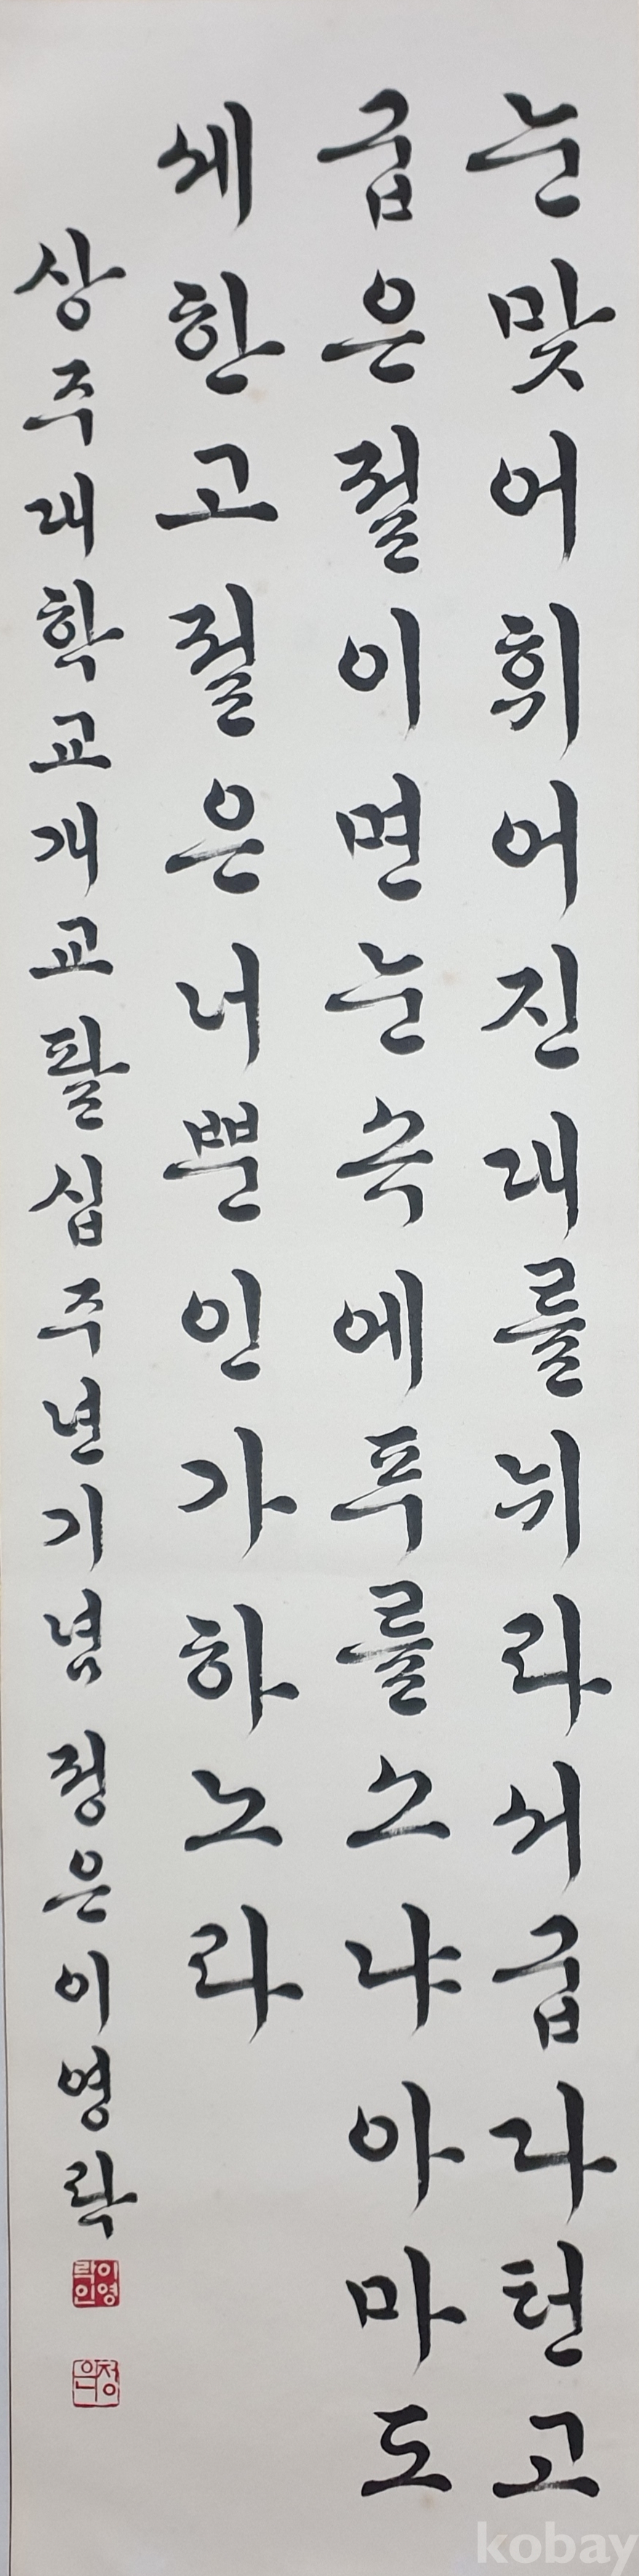 눈맞어휘어진대를뉘라서굽다턴고
굽은절이면눈속에푸를소냐아마도
세한고절은너뿐인가하노라
상주대학교개교팔십주년기념 정은이영락
이영락인
정은
kobay